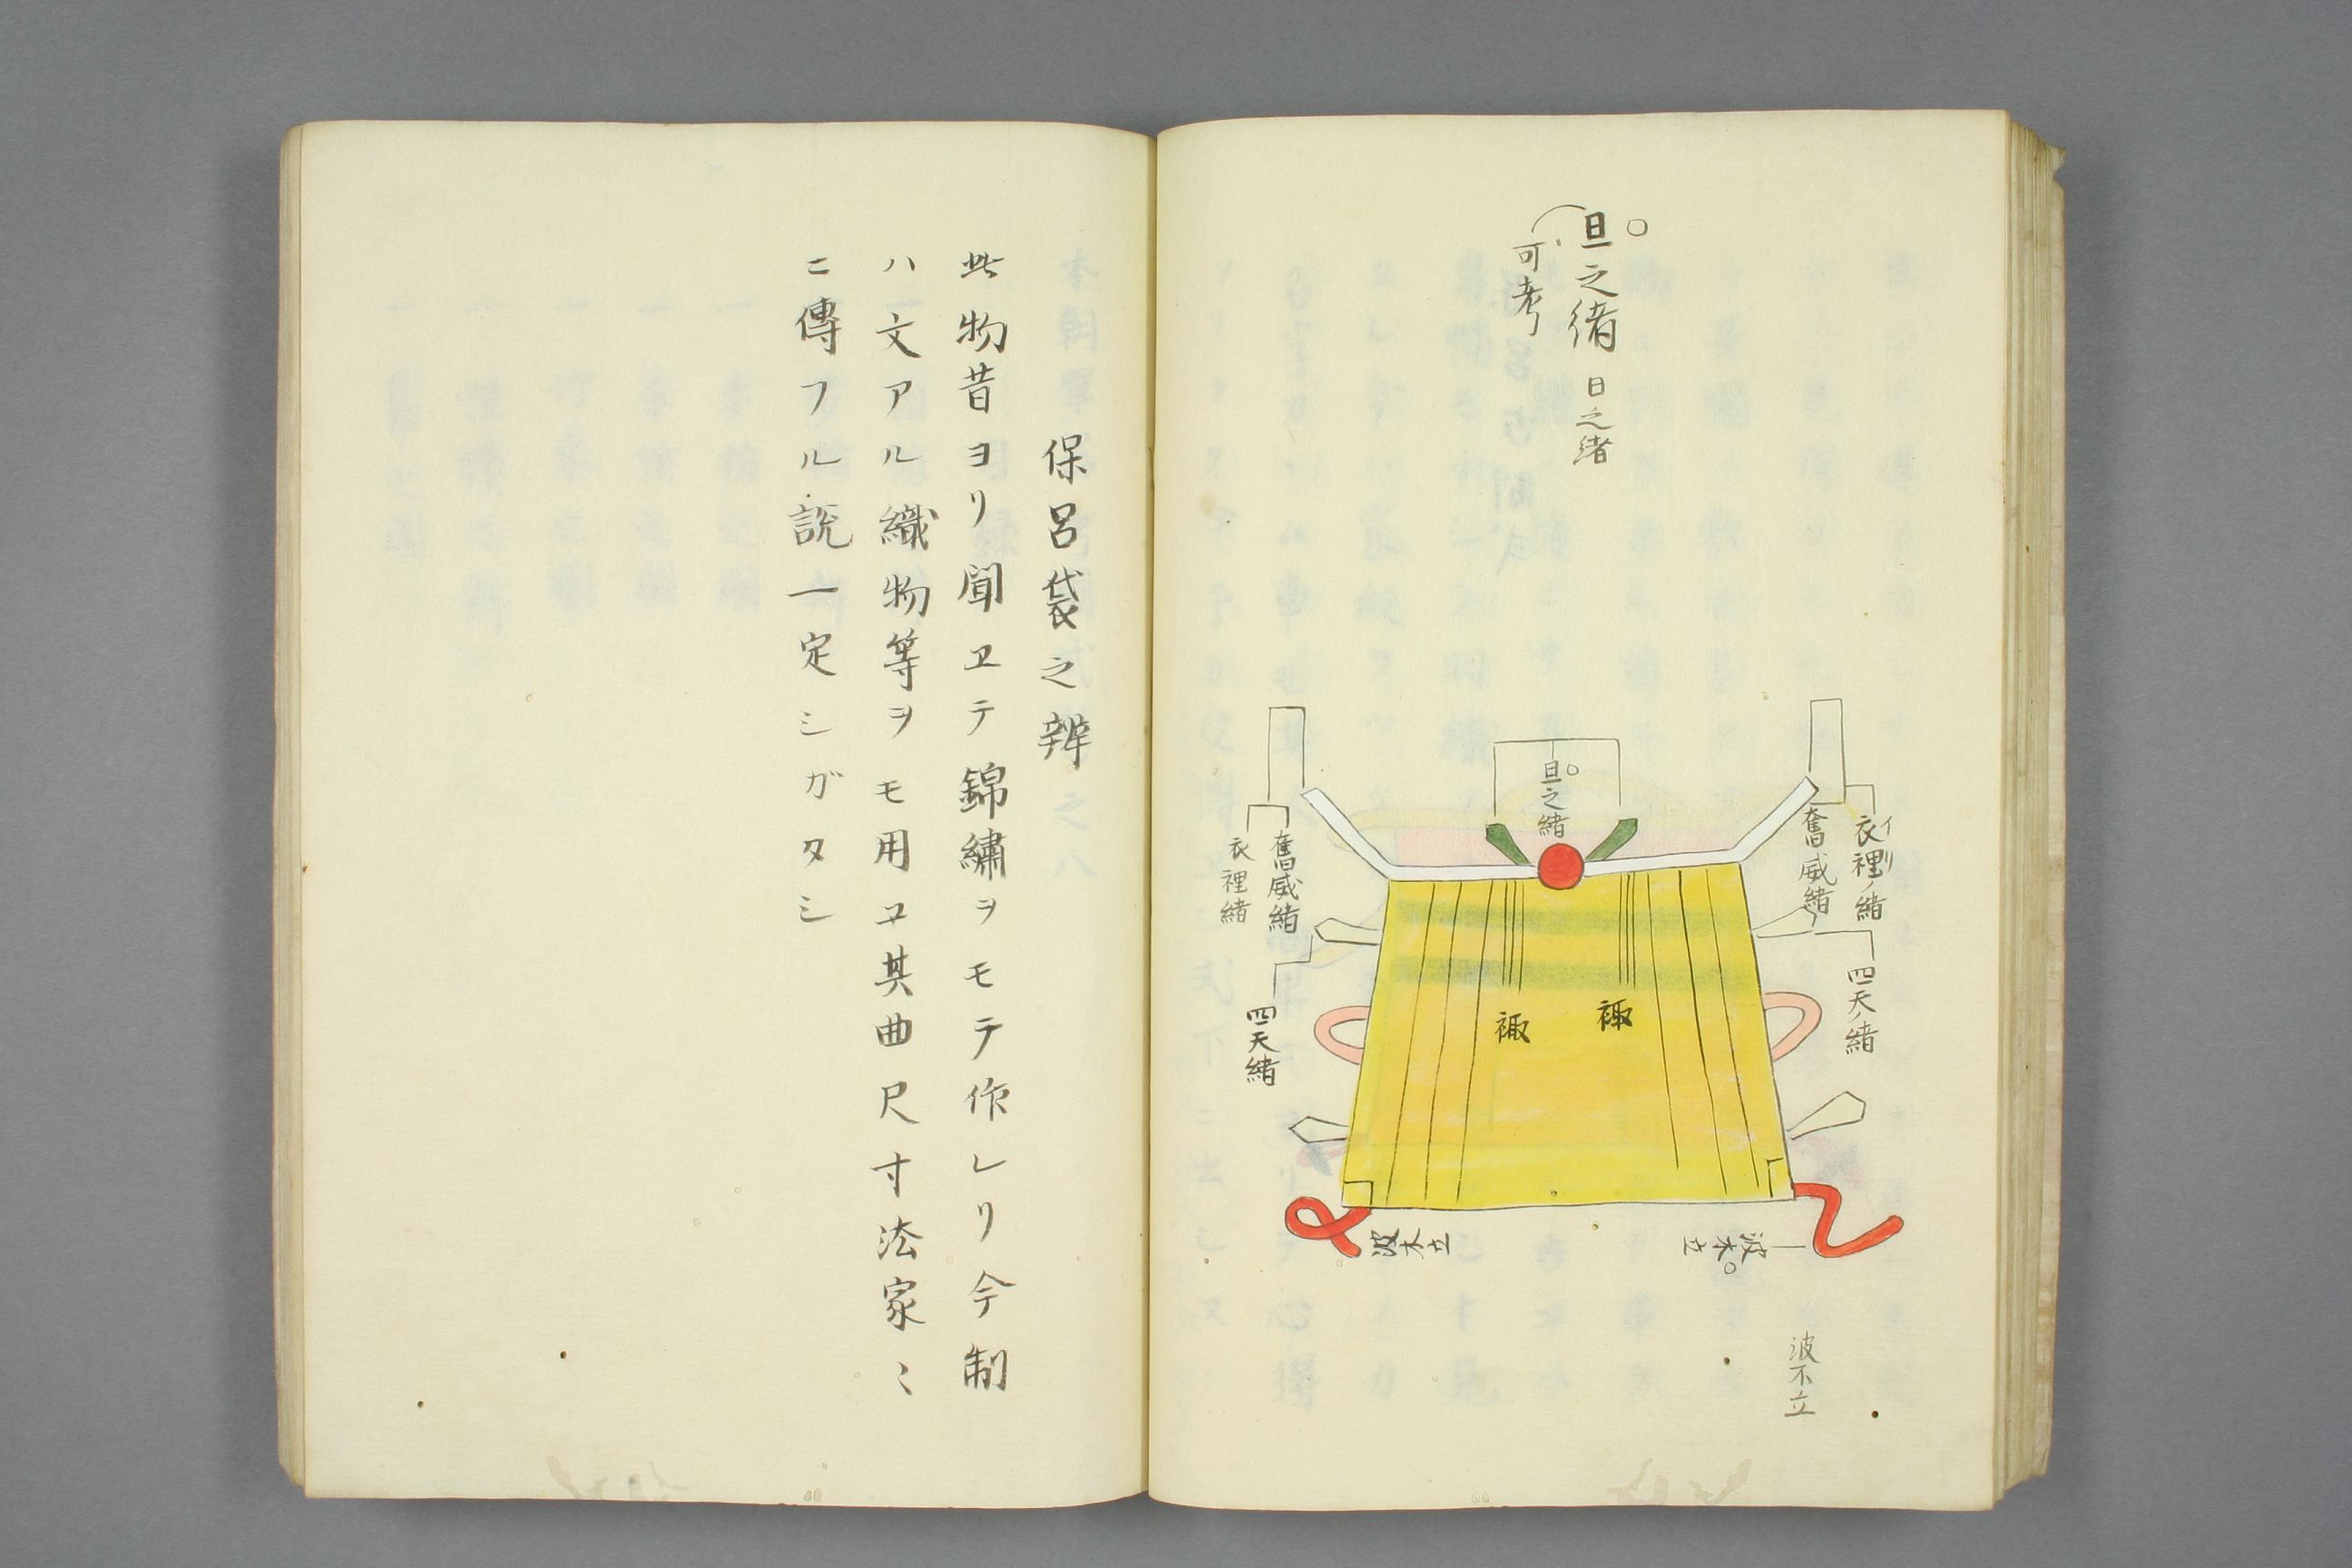 ○旦之緒 日之緒
可考
旦○之緒
衣裡ノ緒
イリ
奮威緒
四天ノ緒
奮威緒
衣裡緒
四天緒
波木立○
波木立
波不立
保呂袋之辨
此物昔ヨリ聞ヱテ錦繡ヲモテ作レリ今制
ハ文アル織物等ヲモ用ユ其曲尺寸法家〻
ニ傳フル説一定シガタシ